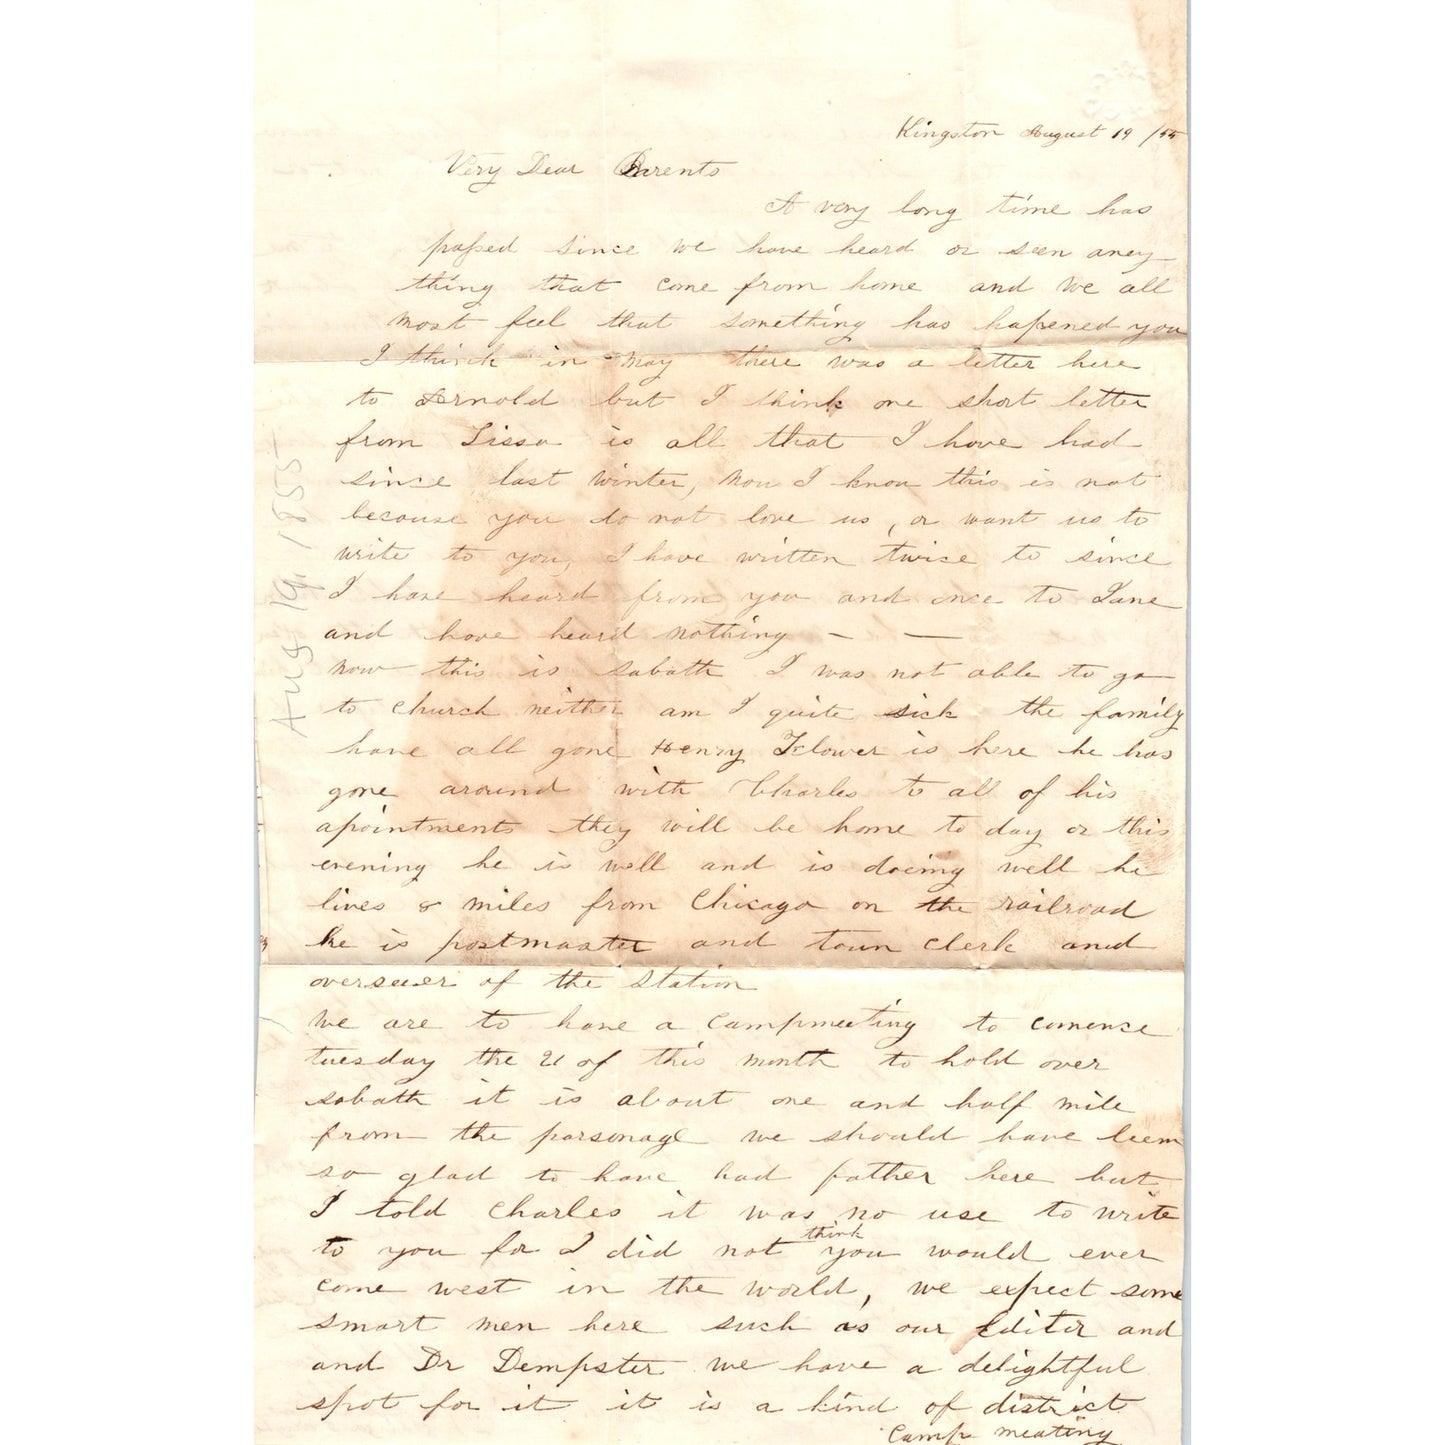 Kingston August 19 /55
Very Dear Parents
A very long time has
passed since we have heard or seen aney
thing that come from home and we all
most feel that something has hapened you
I think in may there was a letter here
to Arnold but I think one short letter
from Lissa is all that I have had
since last winter, now I know this is not
because you do not love us, or want us to
write to you, I have written twice to since
I have heard from you and once to Jane
and have heard nothing — —
now this is sabath I was not able to go
to church neither am I quite sick the family
have all gone Henry Flower is here he has
gone around with Charles to all of his
apointments they will be home to day or this
evening he is well and is doeing well he
lives 8 miles from Chicago on the railroad
he is postmaster and town clerk and
overseeer of the station
we are to have a campmeeting to comence
tuesday the 21 of this month to hold over
sabath it is about one and half mile
from the parsonage we should have been
so glad to have had father here but
I told Charles it was no use to write
to you for I did not think you would ever
come west in the world, we expect some
smart men here such as our Editer and
and Dr Dempster we have a delightful
spot for it it is a kind of district
Camp meating
Aug 19, 1855